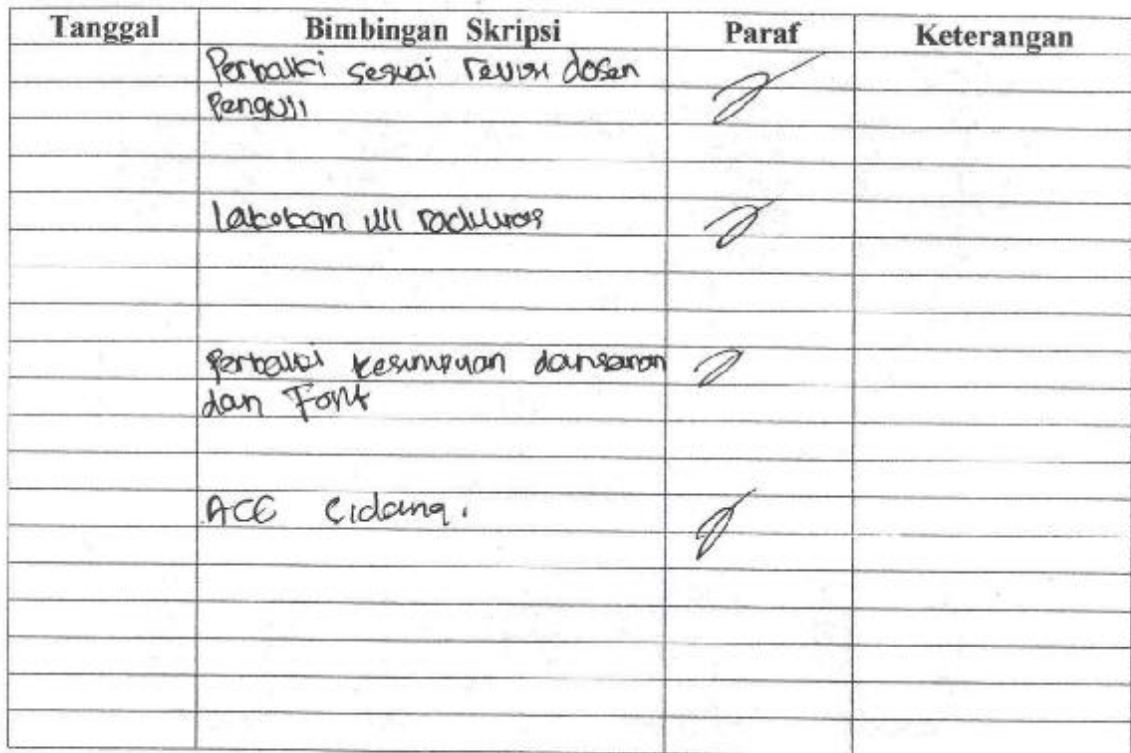 Tanggal Bimbingan Skripsi Paraf Keterangan
Perbaiki sesuai revisi dosen
Penguji
Lakukan uji
Perbaiki kesimpulan dan saran
dan Font
ACC sidang.